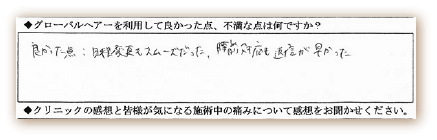 ◆グローバルヘアーを利用して良かった点、不満な点は何ですか?
良かった点:日程変更もスムーズだった。対応も返信が早かった
◆クリニックの感想と皆様が気になる施術中の痛みについて感想をお聞かせください。